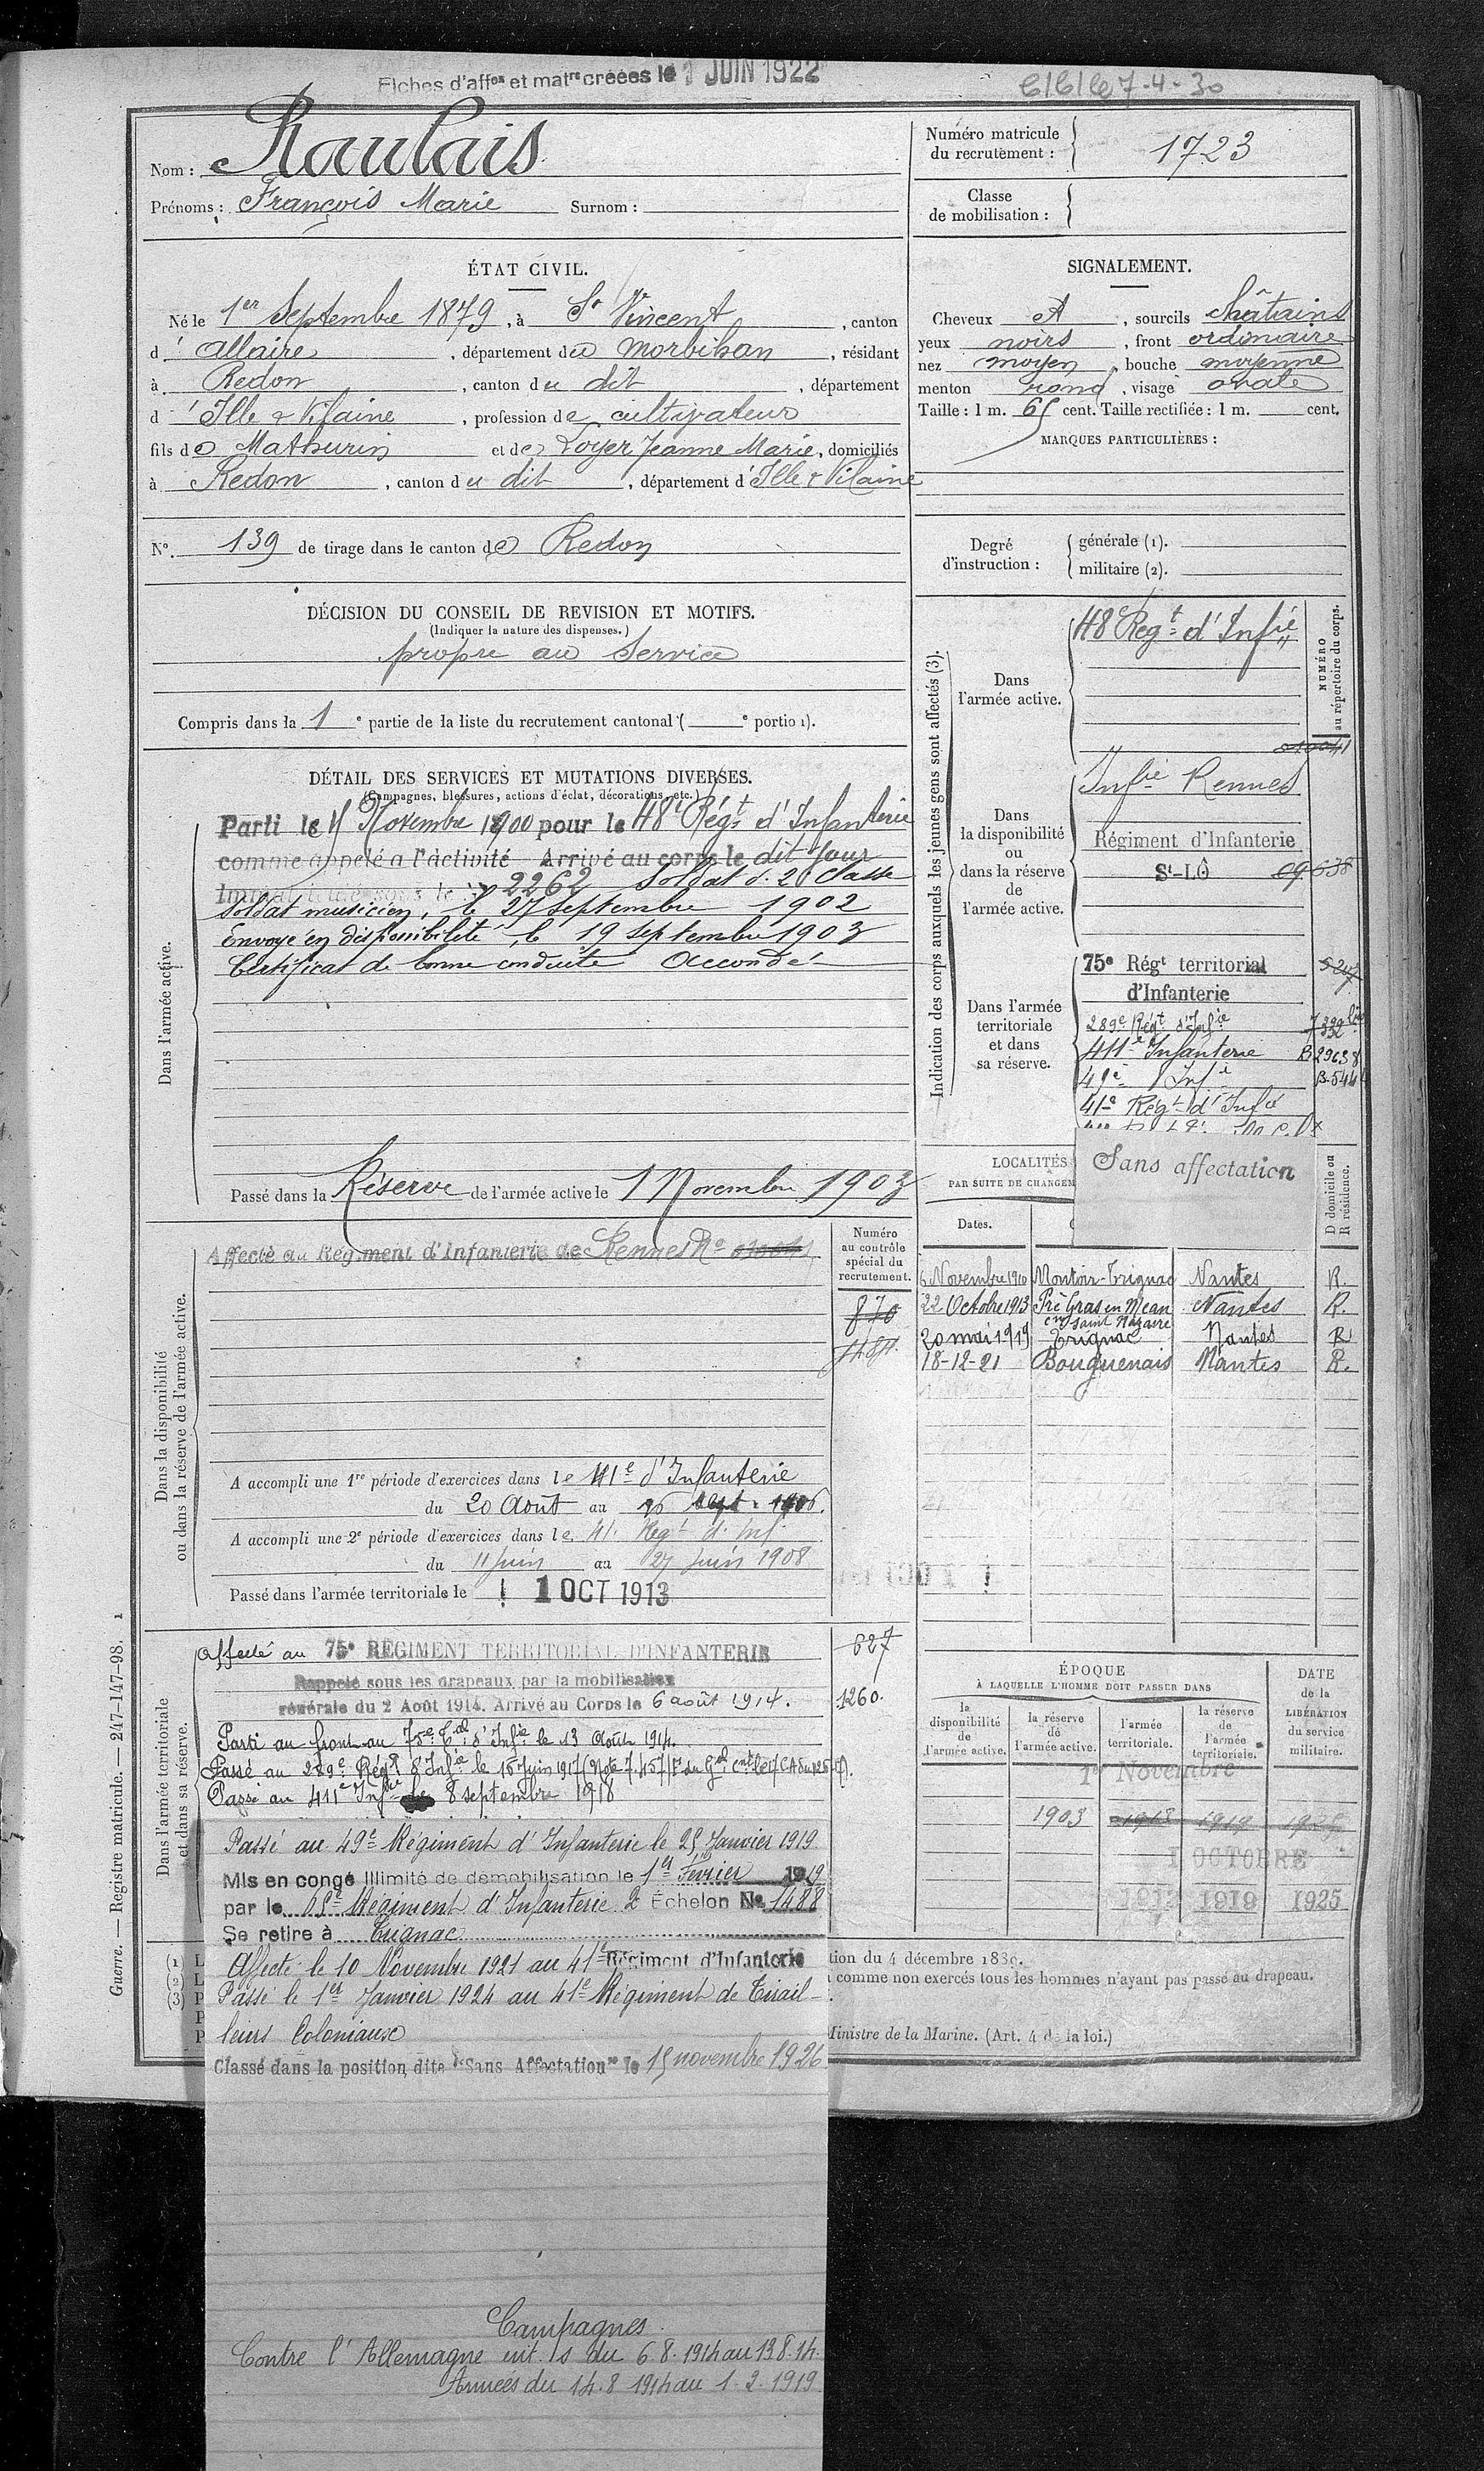 Fiches d'aff^es et mat^re créées le 1 JUIN 1922
7-4-30
Nom : Raulais
Prénoms : François Marie Surnom :
Numéro matricule
du recrutement : 1723
Classe
de mobilisation :
ÉTAT CIVIL.
Né le 1er Septembre 1879, à St Vincent, canton
d'Allaire, département du Morbihan, résidant
à Redon, canton du dit, département
d'Ille & Vilaine, profession de cultivateur
fils de Mathurin et de Loyer Jeanne Marie, domiciliés
à Redon, canton du dit, département d'Ille & Vilaine
N°. 139 de tirage dans le canton de Redon
SIGNALEMENT.
Cheveux et, sourcils châtains
yeux noirs, front ordinaire
nez moyen, bouche moyenne
menton rond, visage ovale
Taille : 1 m. 65 cent. Taille rectifiée : 1 m. cent.
MARQUES PARTICULIÈRES :
Degré
d'instruction :
générale (1).
militaire (2).
DÉCISION DU CONSEIL DE REVISION ET MOTIFS.
(Indiquer la nature des dispenses.)
propre au service
Compris dans la 1e partie de la liste du recrutement cantonal ( e portion).
DÉTAIL DES SERVICES ET MUTATIONS DIVERSES.
(Campagnes, blessures, actions d'éclat, décorations, etc.)
Dans l'armée active.
Parti le Novembre 1900 pour le 48e Régt d'Infanterie
comme appelé à l'activité Arrivé au corps le dit jour
2262 Soldat d. 2e Classe
Soldat musicien, le 27 Septembre 1902
Envoyé en disponibilité, le 19 Septembre 1903
Certificat de bonne conduite Accordé
Passé dans la Réserve de l'armée active le 1 Novembre 1903
Indication des corps auxquels les jeunes gens sont affectés (3).
NUMÉRO
au répertoire du corps.
Dans
l'armée active.
48e Régt d'Infie
Dans
la disponibilité
ou
dans la réserve
de
l'armée active.
Infie Rennes
Régiment d'Infanterie
St-LÔ 09638
Dans l'armée
territoriale
et dans
sa réserve.
75e Régt territorial
d'Infanterie
289e Régt d'Infie
411e Infanterie B 29638
49e Infie
41e Régt d'Infie
Sans affectation
LOCALITÉS
PAR SUITE DE CHANGEM
Dates.
D domicile ou
R résidence.
6 Novembre 1910 Montoir-Trignac Nantes R.
22 Octobre 1913 Pré Gras en Méan Nantes R.
cne Saint Nazaire
20 mai 1919 Trignac Nantes R
18-12-21 Bouguenais Nantes R.
Dans la disponibilité
ou dans la réserve de l'armée active.
Affecté au Régiment d'Infanterie de Rennes No
Numéro
au contrôle
spécial du
recrutement.
870
A accompli une 1re période d'exercices dans le 41e d'Infanterie
du 20 Août au 16 Sept. 1906.
A accompli une 2e période d'exercices dans le 41. Regt d. Inf.
du 11 Juin au 27 Juin 1908
Passé dans l'armée territoriale le 1 OCT 1913
Dans l'armée territoriale
et dans sa réserve.
Affecté au 75e RÉGIMENT TERRITORIAL D'INFANTERIE
627
Rappelé sous les drapeaux par la mobilisation
générale du 2 Août 1914. Arrivé au Corps le 6 août 1914.
1260.
Parti au front au 75e Tal d'Infie le 13 Août 1914.
Passé au 289e Régt d'Infie le 16 Juin 1917
Passé au 411e Infie le 8 septembre 1918
Passé au 49e Régiment d'Infanterie le 25 Janvier 1919
Mis en congé illimité de démobilisation le 1er Février 1919
par le 65e Régiment d'Infanterie 2e Échelon No 1488
Se retire à Trignac
Affecté le 10 Novembre 1921 au 41e Régiment d'Infanterie
Passé le 1er Janvier 1924 au 41e Régiment de Tirail-
leurs Coloniaux
Classé dans la position dite "Sans Affectation" le 15 novembre 1926
ÉPOQUE
À LAQUELLE L'HOMME DOIT PASSER DANS
la
disponibilité
de
l'armée active.
la réserve
de
l'armée active.
l'armée
territoriale.
la réserve
de
l'armée
territoriale.
DATE
de la
LIBÉRATION
du service
militaire.
1er Novembre
1903 1913 1919
1 OCTOBRE
1912 1919 1925
(1) L
(2) L
(3) P
P
P
tion du 4 décembre 1889.
comme non exercés tous les hommes n'ayant pas passé au drapeau.
Ministre de la Marine. (Art. 4 de la loi.)
Guerre. — Registre matricule. — 247-147-98. 1
Campagnes
Contre l'Allemagne int. s du 6.8.1914 au 13.8.14.
Armées du 14.8.1914 au 1.2.1919